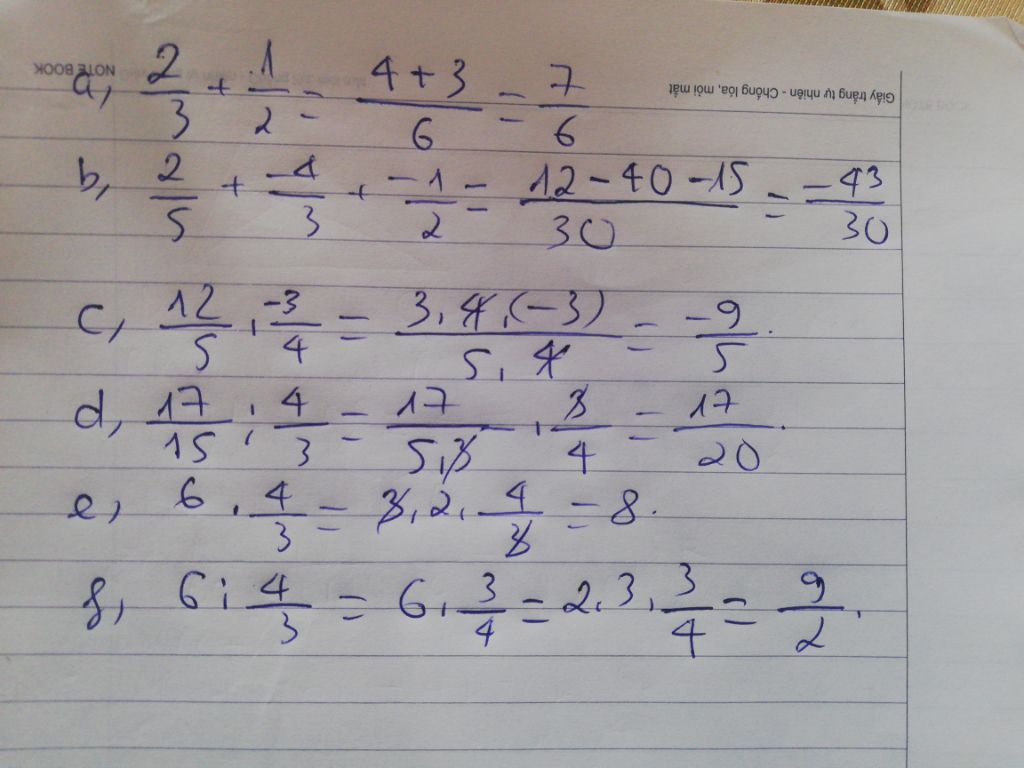 NOTE BOOK
Giấy trắng tự nhiên - Chống lóa, mỏi mắt
a, 2/3 + 1/2 = (4 + 3)/6 = 7/6
b, 2/5 + -4/3 + -1/2 = (12 - 40 - 15)/30 = -43/30
c, 12/5 . -3/4 = (3 . 4 . (-3))/(5 . 4) = -9/5.
d, 17/15 : 4/3 = 17/(5 . 3) . 3/4 = 17/20.
e, 6 . 4/3 = 3 . 2 . 4/3 = 8.
f, 6 : 4/3 = 6 . 3/4 = 2 . 3 . 3/4 = 9/2.